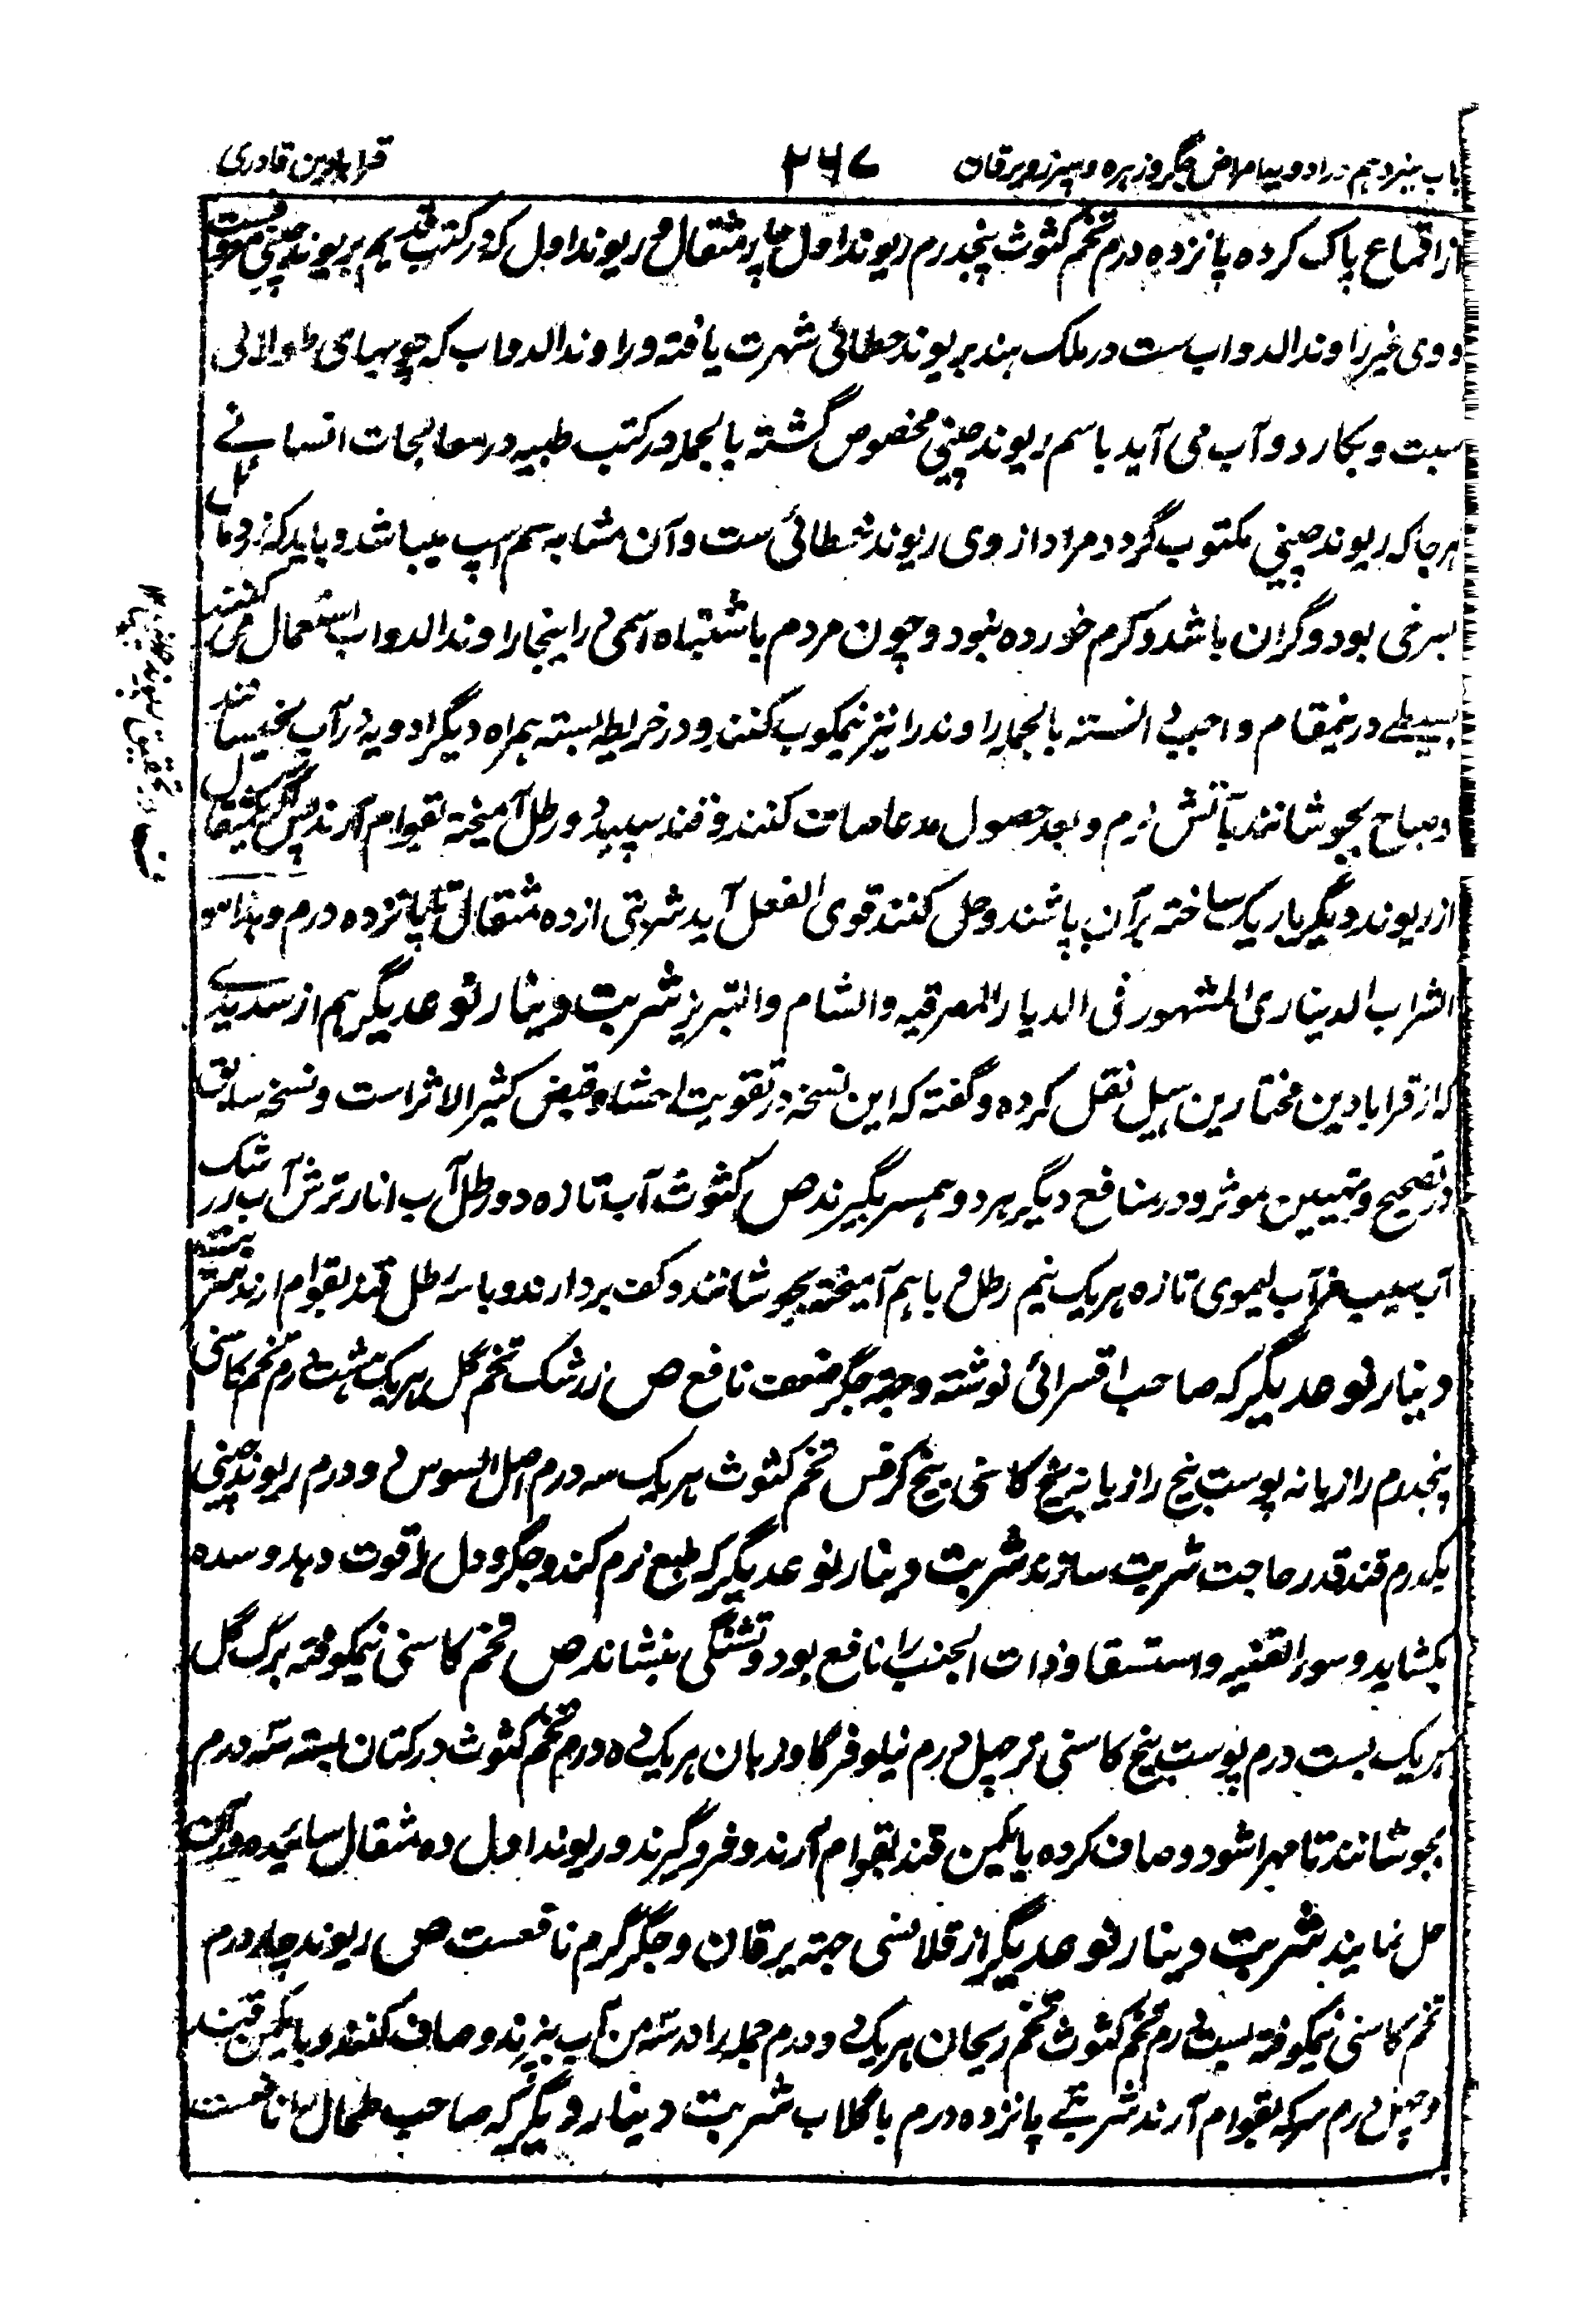 باب سیزدهم در ادویه امراض جگر و زهره و سپرز و یرقان
۲۶۷
قرابادین قادری
از اقماع پاک کرده پانزده درم تخم کثوث پنجدرم ریوند اول چار مثقال و ریوند اول که در کتب قدیم بریوند چینی معروفست
و وی غیر راوند الدواب ست در ملک هند بریوند خطائی شهرت یافته و راوند الدواب که چوبهای طولانی
ست و بکار دواب می آید باسم ریوند چینی مخصوص گشته بالجمله در کتب طبیه در معالجات انسانے
هر جا که ریوند چینی مکتوب گردد مراد از وی ریوند خطائی ست و آن مشابه سم اسپ میباشد و باید که زرد مائل
بسرخی بود و گران باشد و کرم خورده نبود و چون مردم باشتباه اسمی در اینجا راوند الدواب استعمال می کنند
بسیطے درینمقام واجب دانسته بالجمله راوند را نیز نیمکوب کنند و در خریطه بسته همراه دیگر ادویه در آب بخیسانند
و صباح بجوشانند بآتش نرم و بعد حصول مدعا صاف کنند و قند سپید دو رطل آمیخته بقوام آرند پس
از ریوند دیگر باریک ساخته بر آن پاشند و حل کنند قوی الفعل آید شربتی از ده مثقال تا پانزده درم و هذا هو
الشراب الدیناری المشهور فی الدیار المصریه والشام والتبریز شربت دینار نوعدیگر هم از سدیدے
که از قرابادین مختار بن هبل نقل کرده و گفته که این نسخه در تقویت احشا و قبض کثیر الاثر است و نسخه سابق
در تفتیح و تلیین موثر و در منافع دیگر هر دو همسر بگیرند ص کثوث آب تازه دو رطل آب انار ترش آب زرشک
آب سیب مز آب لیموی تازه هر یک نیم رطل باهم آمیخته بجوشانند و کف بردارند و با سه رطل قند بقوام آرند شربت
دینار نوعدیگر که صاحب اقسرائی نوشته و جهة جگر ضعف نافع ص زرشک تخم گل هر یک هشت درم تخم کاسنی
پنجدرم رازیانه پوست بیخ رازیانه بیخ کاسنی بیخ کرفس تخم کثوث هر یک سه درم اصل السوس دو درم ریوند چینی
یکدرم قند قدر حاجت شربت سازند شربت دینار نوعدیگر که طبع نرم کند و جگر و دل را قوت دهد و سده
بکشاید و سوء القنیه و استسقا و ذات الجنب را نافع بود و تشنگی بنشاند ص تخم کاسنی نیمکوفته برگ گل
هر یک بست درم پوست بیخ کاسنی تر چهل درم نیلوفر گاوزبان هر یک ده درم تخم کثوث در کتان بسته سه درم
بجوشانند تا مهرا شود و صاف کرده با یکمن قند بقوام آرند و فرو گیرند و ریوند اول ده مثقال سائیده در آن
حل نمایند شربت دینار نوعدیگر از قلانسی جهة یرقان و جگر گرم نافعست ص ریوند چار درم
تخم کاسنی نیمکوفته بست درم تخم کثوث تخم ریحان هر یک دو درم جمله را در سه من آب بپزند و صاف کنند و با یکمن قند
و چهل درم سرکه بقوام آرند شربتے پانزده درم با گلاب شربت دینار دیگر که صاحب طحال را نافعست